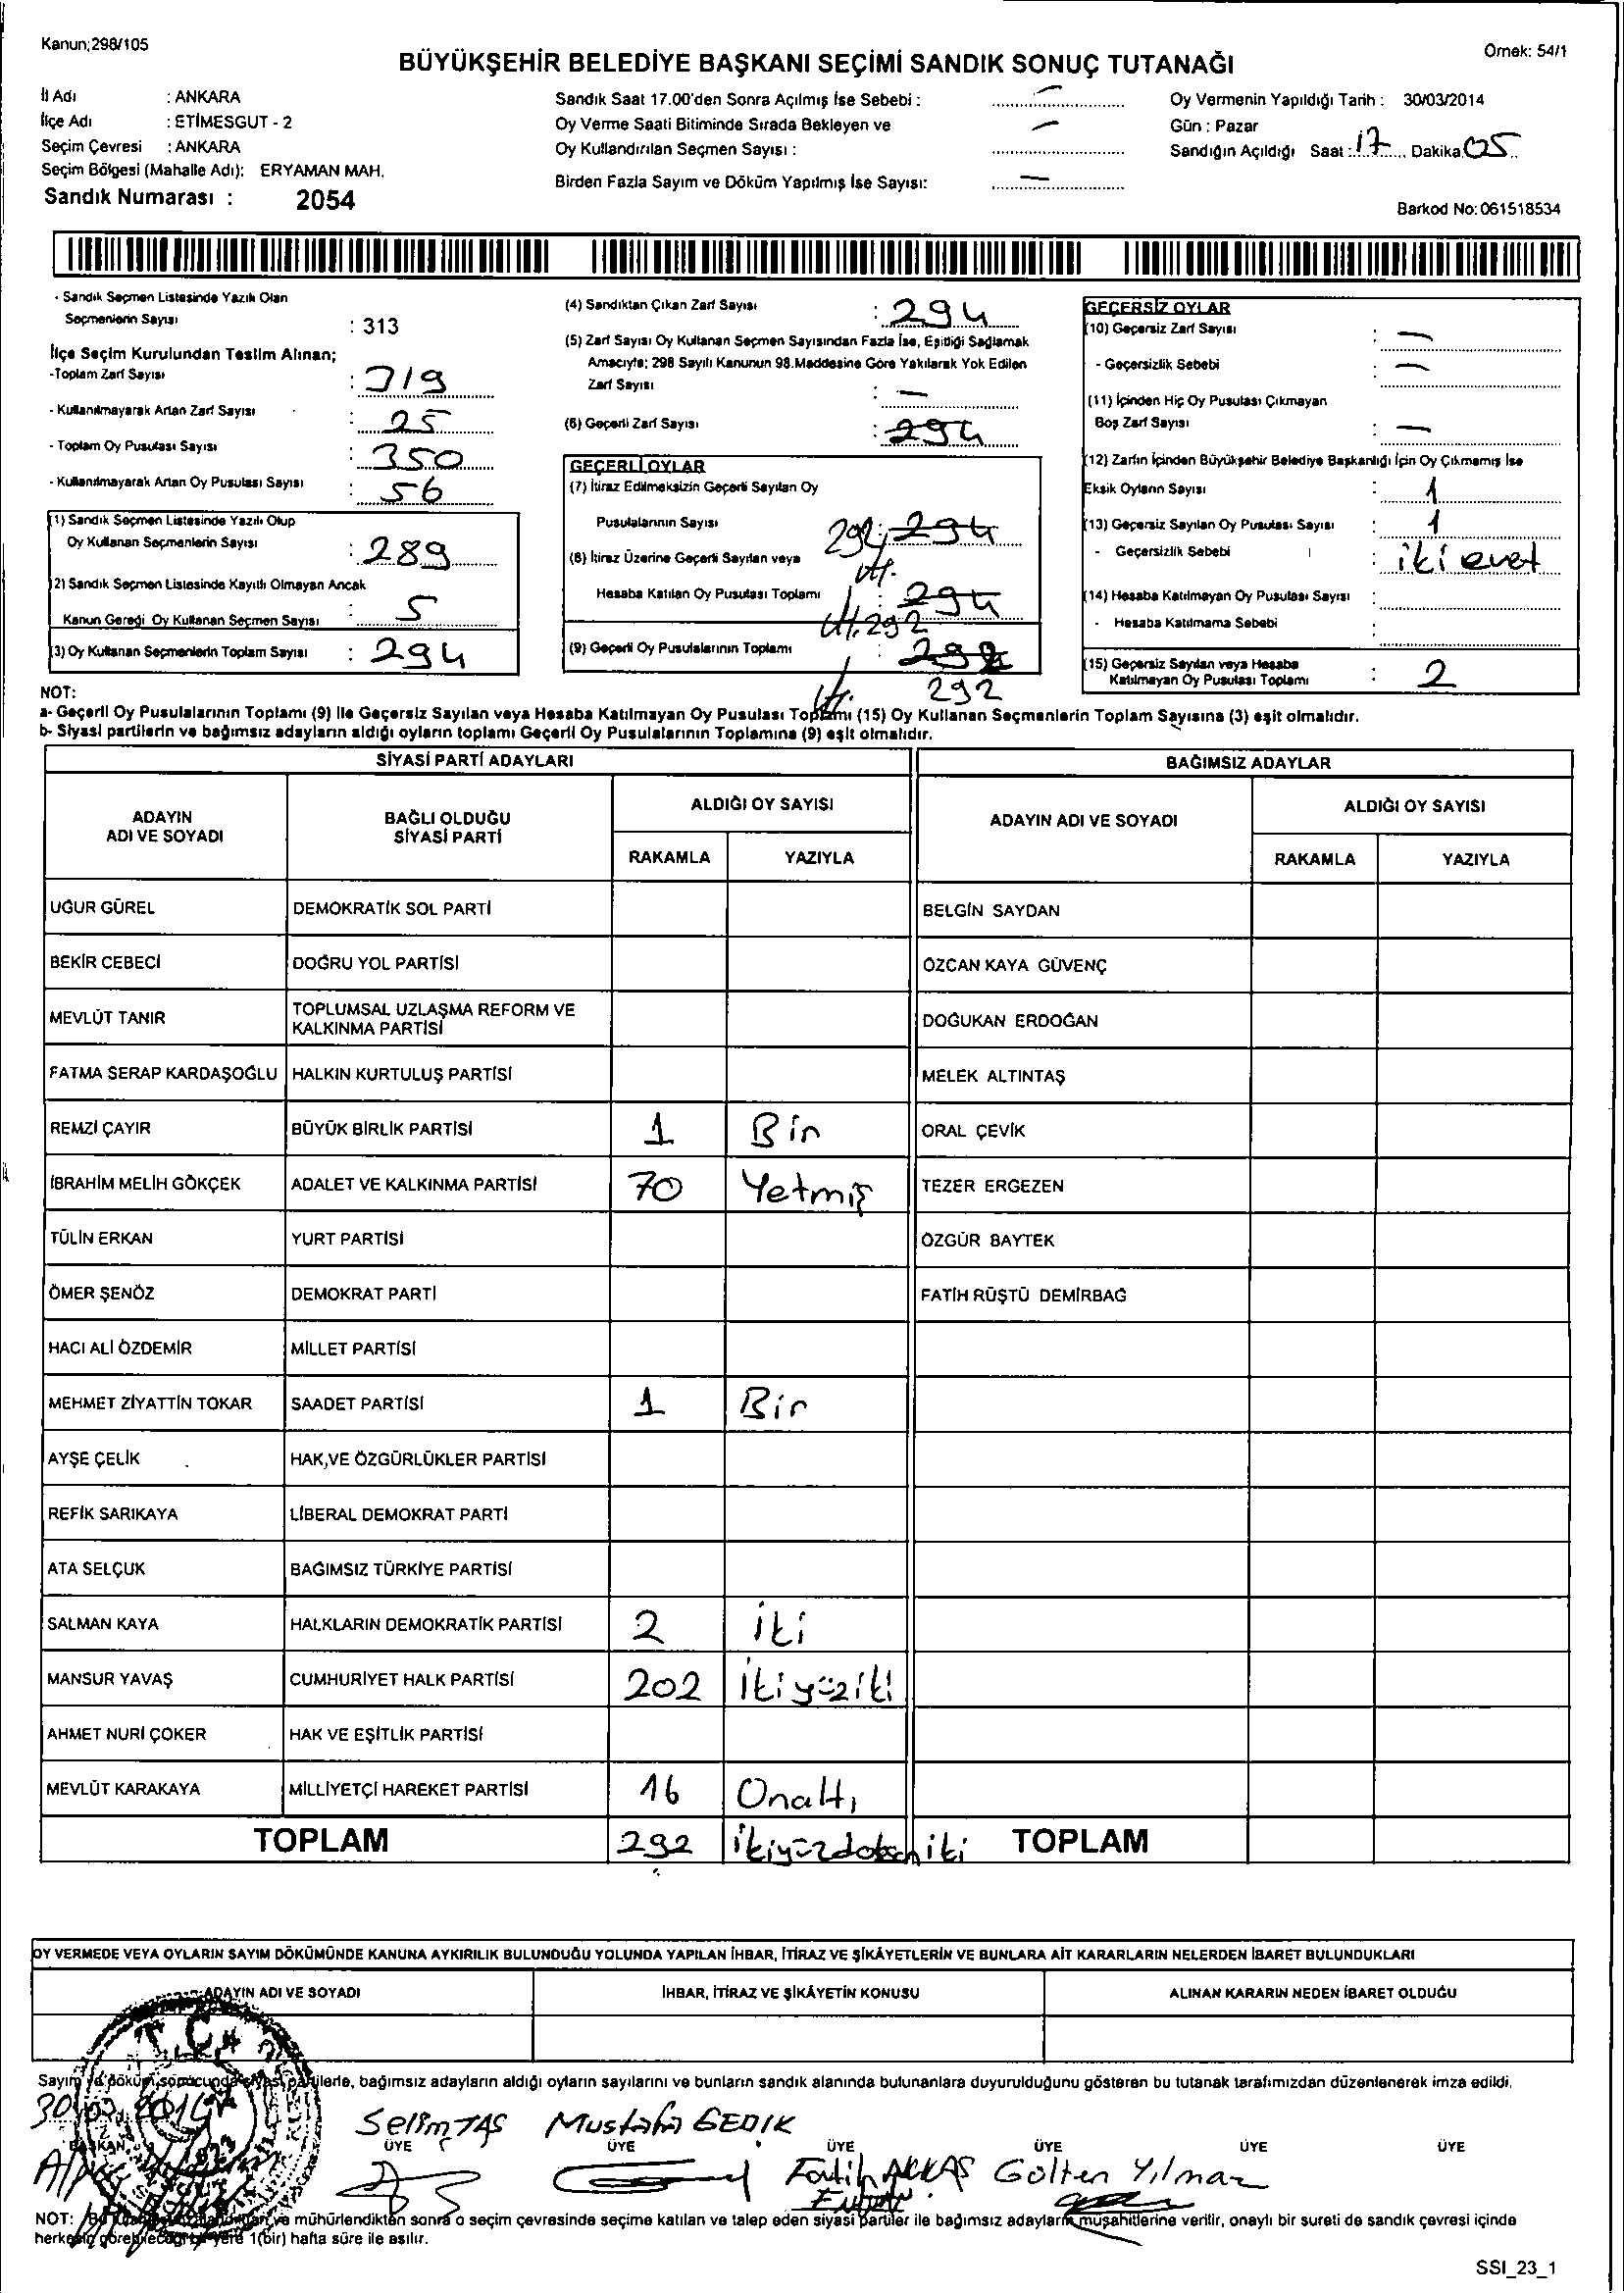 Kanun;298/105
Örnek: 54/1
BÜYÜKŞEHİR BELEDİYE BAŞKANI SEÇİMİ SANDIK SONUÇ TUTANAĞI
İl Adı : ANKARA
İlçe Adı : ETİMESGUT - 2
Seçim Çevresi : ANKARA
Seçim Bölgesi (Mahalle Adı): ERYAMAN MAH.
Sandık Numarası : 2054
Sandık Saat 17.00'den Sonra Açılmış İse Sebebi : —
Oy Verme Saati Bitiminde Sırada Bekleyen ve
Oy Kullandırılan Seçmen Sayısı : —
Birden Fazla Sayım ve Döküm Yapılmış İse Sayısı: —
Oy Vermenin Yapıldığı Tarih : 30/03/2014
Gün : Pazar
Sandığın Açıldığı Saat : 17 Dakika 05
Barkod No: 061518534
- Sandık Seçmen Listesinde Yazılı Olan
Seçmenlerin Sayısı : 313
İlçe Seçim Kurulundan Teslim Alınan;
-Toplam Zarf Sayısı : 319
- Kullanılmayarak Artan Zarf Sayısı : 25
- Toplam Oy Pusulası Sayısı : 350
- Kullanılmayarak Artan Oy Pusulası Sayısı : 56
(1) Sandık Seçmen Listesinde Yazılı Olup
Oy Kullanan Seçmenlerin Sayısı : 289
(2) Sandık Seçmen Listesinde Kayıtlı Olmayan Ancak
Kanun Gereği Oy Kullanan Seçmen Sayısı : 5
(3) Oy Kullanan Seçmenlerin Toplam Sayısı : 294
(4) Sandıktan Çıkan Zarf Sayısı : 294
(5) Zarf Sayısı Oy Kullanan Seçmen Sayısından Fazla İse, Eşitliği Sağlamak
Amacıyla; 298 Sayılı Kanunun 98.Maddesine Göre Yakılarak Yok Edilen
Zarf Sayısı : —
(6) Geçerli Zarf Sayısı : 294
GEÇERLİ OYLAR
(7) İtiraz Edilmeksizin Geçerli Sayılan Oy
Pusulalarının Sayısı 292 294
(8) İtiraz Üzerine Geçerli Sayılan veya
Hesaba Katılan Oy Pusulası Toplamı : 294
292
(9) Geçerli Oy Pusulalarının Toplamı : 292
292
GEÇERSİZ OYLAR
(10) Geçersiz Zarf Sayısı : —
- Geçersizlik Sebebi : —
(11) İçinden Hiç Oy Pusulası Çıkmayan
Boş Zarf Sayısı : —
(12) Zarfın İçinden Büyükşehir Belediye Başkanlığı İçin Oy Çıkmamış İse
Eksik Oyların Sayısı : 1
(13) Geçersiz Sayılan Oy Pusulası Sayısı : 1
- Geçersizlik Sebebi : iki evet
(14) Hesaba Katılmayan Oy Pusulası Sayısı :
- Hesaba Katılmama Sebebi :
(15) Geçersiz Sayılan veya Hesaba
Katılmayan Oy Pusulası Toplamı : 2
NOT:
a- Geçerli Oy Pusulalarının Toplamı (9) ile Geçersiz Sayılan veya Hesaba Katılmayan Oy Pusulası Toplamı (15) Oy Kullanan Seçmenlerin Toplam Sayısına (3) eşit olmalıdır.
b- Siyasi partilerin ve bağımsız adayların aldığı oyların toplamı Geçerli Oy Pusulalarının Toplamına (9) eşit olmalıdır.
SİYASİ PARTİ ADAYLARI
BAĞIMSIZ ADAYLAR
ADAYIN ADI VE SOYADI
BAĞLI OLDUĞU SİYASİ PARTİ
ALDIĞI OY SAYISI
RAKAMLA YAZIYLA
ADAYIN ADI VE SOYADI
ALDIĞI OY SAYISI
RAKAMLA YAZIYLA
UĞUR GÜREL DEMOKRATİK SOL PARTİ BELGİN SAYDAN
BEKİR CEBECİ DOĞRU YOL PARTİSİ ÖZCAN KAYA GÜVENÇ
MEVLÜT TANIR TOPLUMSAL UZLAŞMA REFORM VE KALKINMA PARTİSİ DOĞUKAN ERDOĞAN
FATMA SERAP KARDAŞOĞLU HALKIN KURTULUŞ PARTİSİ MELEK ALTINTAŞ
REMZİ ÇAYIR BÜYÜK BİRLİK PARTİSİ 1 Bir ORAL ÇEVİK
İBRAHİM MELİH GÖKÇEK ADALET VE KALKINMA PARTİSİ 70 Yetmiş TEZER ERGEZEN
TÜLİN ERKAN YURT PARTİSİ ÖZGÜR BAYTEK
ÖMER ŞENÖZ DEMOKRAT PARTİ FATİH RÜŞTÜ DEMİRBAĞ
HACI ALİ ÖZDEMİR MİLLET PARTİSİ
MEHMET ZİYATTİN TOKAR SAADET PARTİSİ 1 Bir
AYŞE ÇELİK HAK,VE ÖZGÜRLÜKLER PARTİSİ
REFİK SARIKAYA LİBERAL DEMOKRAT PARTİ
ATA SELÇUK BAĞIMSIZ TÜRKİYE PARTİSİ
SALMAN KAYA HALKLARIN DEMOKRATİK PARTİSİ 2 iki
MANSUR YAVAŞ CUMHURİYET HALK PARTİSİ 202 ikiyüziki
AHMET NURİ ÇOKER HAK VE EŞİTLİK PARTİSİ
MEVLÜT KARAKAYA MİLLİYETÇİ HAREKET PARTİSİ 16 Onaltı
TOPLAM 292 ikiyüzdoksaniki TOPLAM
OY VERMEDE VEYA OYLARIN SAYIM DÖKÜMÜNDE KANUNA AYKIRILIK BULUNDUĞU YOLUNDA YAPILAN İHBAR, İTİRAZ VE ŞİKÂYETLERİN VE BUNLARA AİT KARARLARIN NELERDEN İBARET BULUNDUKLARI
ADAYIN ADI VE SOYADI İHBAR, İTİRAZ VE ŞİKÂYETİN KONUSU ALINAN KARARIN NEDEN İBARET OLDUĞU
T.C.
Sayım ve döküm sonucunda siyasi partilerle, bağımsız adayların aldığı oyların sayılarını ve bunların sandık alanında bulunanlara duyurulduğunu gösteren bu tutanak tarafımızdan düzenlenerek imza edildi.
30/03/2014
Selim TAŞ Mustafa GEDIK
BAŞKAN ÜYE ÜYE ÜYE ÜYE ÜYE ÜYE
Fatih AKKAŞ Gülten Yılmaz
NOT: ve mühürlendikten sonra o seçim çevresinde seçime katılan ve talep eden siyasi partiler ile bağımsız adayların müşahitlerine verilir, onaylı bir sureti de sandık çevresi içinde
herkesin görebileceği bir yere 1(bir) hafta süre ile asılır.
SSI_23_1